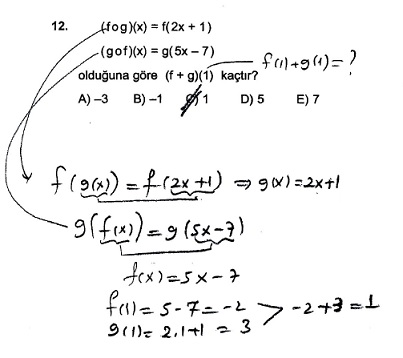 12. (fog)(x) = f(2x + 1)
(gof)(x) = g(5x – 7)
olduğuna göre (f + g)(1) kaçtır?
f(1)+g(1)=?
A) –3 B) –1 C) 1 D) 5 E) 7
f(g(x)) = f(2x+1) ⇒ g(x)=2x+1
g(f(x)) = g(5x-7)
f(x)=5x-7
f(1)=5-7=-2
g(1)=2.1+1=3
> -2+3=1